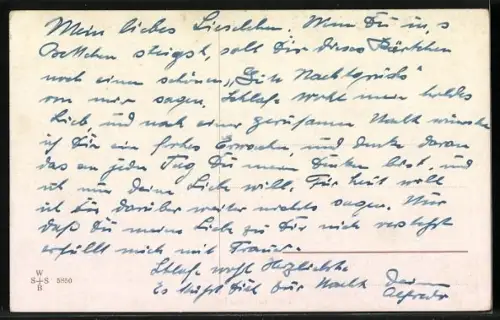 Mein liebes Lieschchen. Wenn Du in's
Bettchen steigst, soll Dir dieses Kärtchen
noch einen schönen „Gute Nachtgruß"
von mir sagen. Schlafe wohl mein holdes
Lieb, und nach einer geruhsamen Nacht wünsche
ich Dir ein frohes Erwachen, und denke daran
das an jeden Tag Du mein Denken bist, und
ich nur Deine Liebe will. Für heut will
ich Dir darüber weiter nichts sagen. Nur
daß Du meine Liebe zu Dir nich verstehst
erfüllt mich mit Trauer.
Schlaf wohl Herzliebste
Es küßt Dich zur Nacht Dein
Alfred
W
S+S 5950
B